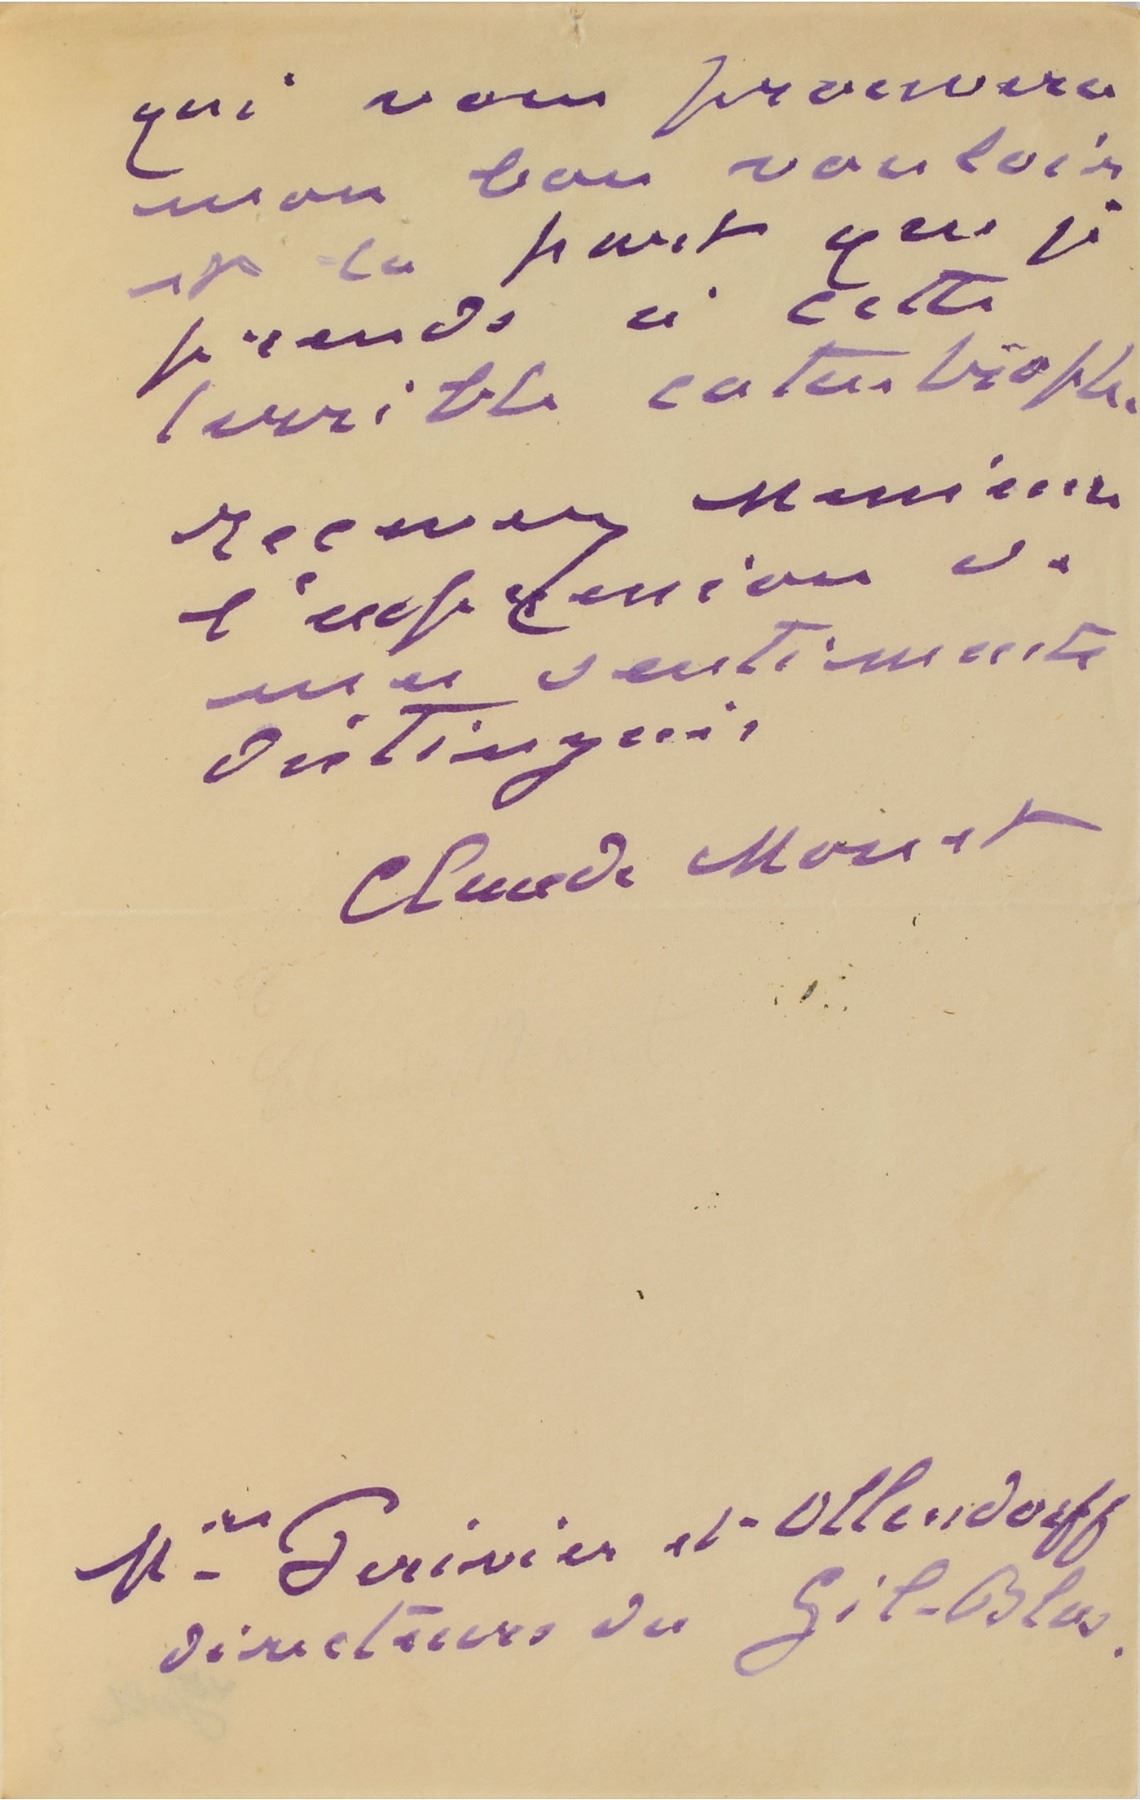 qui vous prouvera
mon bon vouloir
et la part que je
prends à cette
terrible catastrophe.
Recevez Messieurs
l'expression de
mes sentiments
distingués
Claude Monet
Mrs Perivier et Ollendorff
directeurs du Gil-Blas.